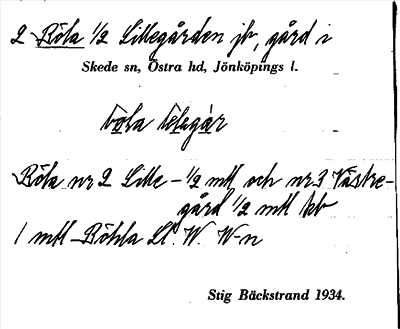 2 Röla 1/2 Lillegården jb, gård i
Skede sn, Östra hd, Jönköpings l.
Röla nr 2 Lille- 1/2 mtl och nr 3 Västre-
gård 1/2 mtl kb
1 mtl Röhla Ll. W. W-n
Stig Bäckstrand 1934.